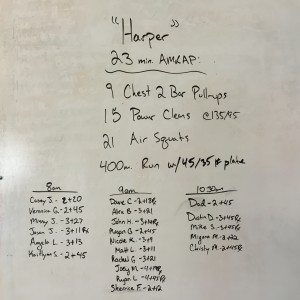 "Harper"
23 min. AMRAP:
9 Chest 2 Bar Pullups
15 Power Cleans @135/95
21 Air Squats
400m Run w/45/35# plate
8am
Casey J. - 2+20
Veronica G. - 2+45
Missy J. - 3+27
Jason J. - 3+11Rx
Angela L. - 3+13
Kaitlynn S. - 2+45
9am
Dave C. - 2+18Rx
Alex B - 3+21
John H. - 3+20Rx
Megan G - 2+45
Nicole K. - 3+9
Matt L. - 3+11
Rachel G - 3+21
Joey M. - 4+1Rx
Ryan L. - 4+45Rx
Sherica F. - 2+12
10:30am
Dad - 2+45
Dustin D. - 3+45Rx
Mike S. - 3+45Rx
Miguel M. - 2+2
Christy M. - 2+45Rx